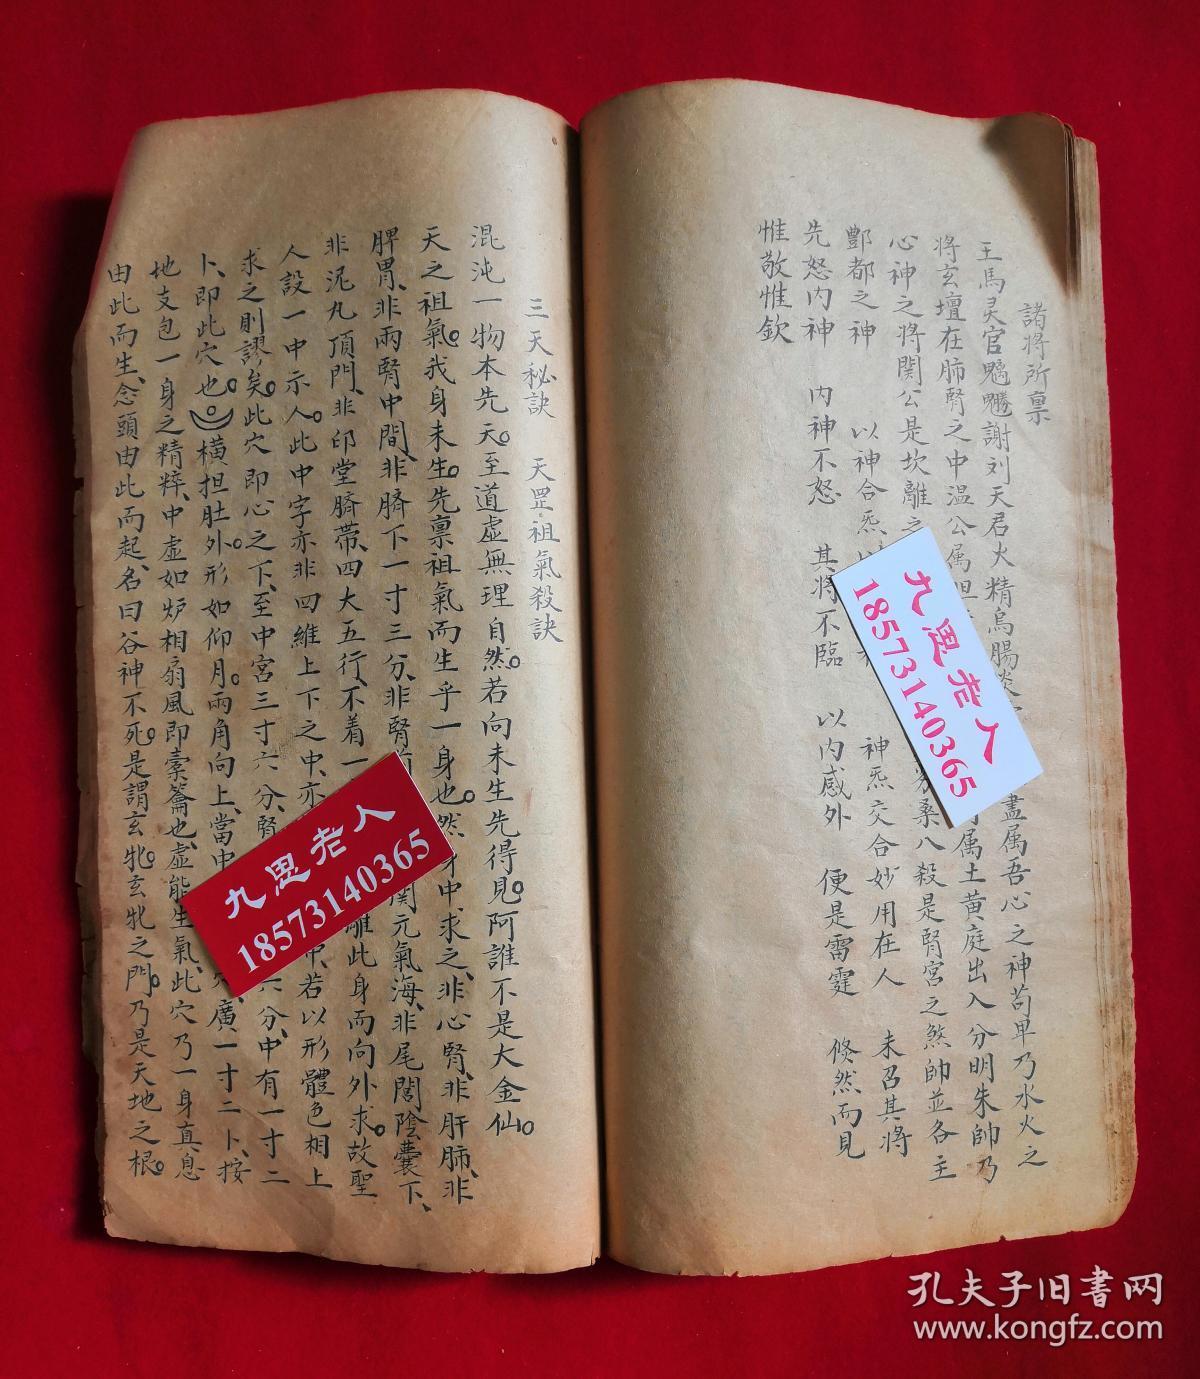 諸將所稟
王馬灵官魑魎謝刘天君火精烏腸 盡属吾心之神苟毕乃水火之
將玄壇在肺腎之中温公属胆 属土黄庭出入分明朱帥乃
心神之將関公是坎離之 桑八殺是腎宫之煞帥並各主
酆都之神 以神合炁以 神炁交合妙用在人 未召其將
先怒内神 内神不怒 其將不臨 以内感外 便是雷霆 倏然而見
惟敬惟欽
三天秘訣 天罡祖氣殺訣
混沌一物本先天。至道虚無理自然。若向未生先得見。阿誰不是大金仙。
天之祖氣。我身未生。先稟祖氣而生乎一身也。然身中求之、非心腎、非肝肺、非
脾胃、非兩腎中間、非臍下一寸三分、非腎前 関元氣海、非尾閭陰囊下、
非泥九頂門、非印堂臍带、四大五行、不着一 離此身而向外求。故聖
人設一中示人。此中字亦非四維上下之中、亦 中、若以形體色相上
求之則謬矣。此穴即心之下、至中宫三寸六分、腎 六分、中有一寸二
卜、即此穴也。横担肚外。形如仰月。兩角向上、當中 穴、廣一寸二卜、按
地支包一身之精粹、中虚如炉相扇風即橐籥也、虚能生氣、此穴乃一身真息
由此而生、念頭由此而起、名曰谷神不死。是謂玄牝。玄牝之門。乃是天地之根。
九思老人
18573140365
九思老人
18573140365
孔夫子旧书网
www.kongfz.com